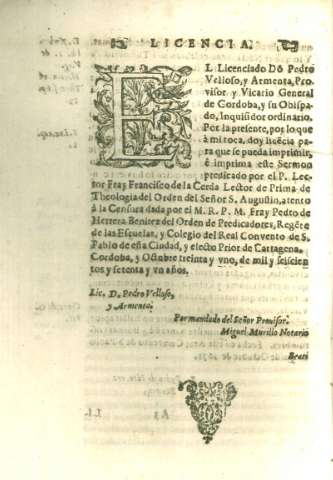 LICENCIA.
EL Licenciado Dõ Pedro
Velloso, y Armenta, Pro-
visor, y Vicario General
de Cordoba, y su Obispa-
do, Inquisidor ordinario.
Por la presente, por lo que
à mi toca, doy licẽcia pa-
ra que se pueda imprimir,
è imprima este Sermon
predicado por el P. Lec-
tor Fray Francisco de la Cerda Lector de Prima de
Theologia del Orden del Señor S. Augustin, atento
à la Censura dada por el M. R. P. M. Fray Pedro de
Herrera Benitez del Orden de Predicadores, Regẽte
de las Escuelas, y Colegio del Real Convento de S.
Pablo de esta Ciudad, y electo Prior de Cartagena.
Cordoba, y Octubre treinta y uno, de mil y seiscien
tos y setenta y un años.
Lic. D. Pedro Velloso,
y Armenta.
Por mandado del Señor Provisor.
Miguel Murillo Notario